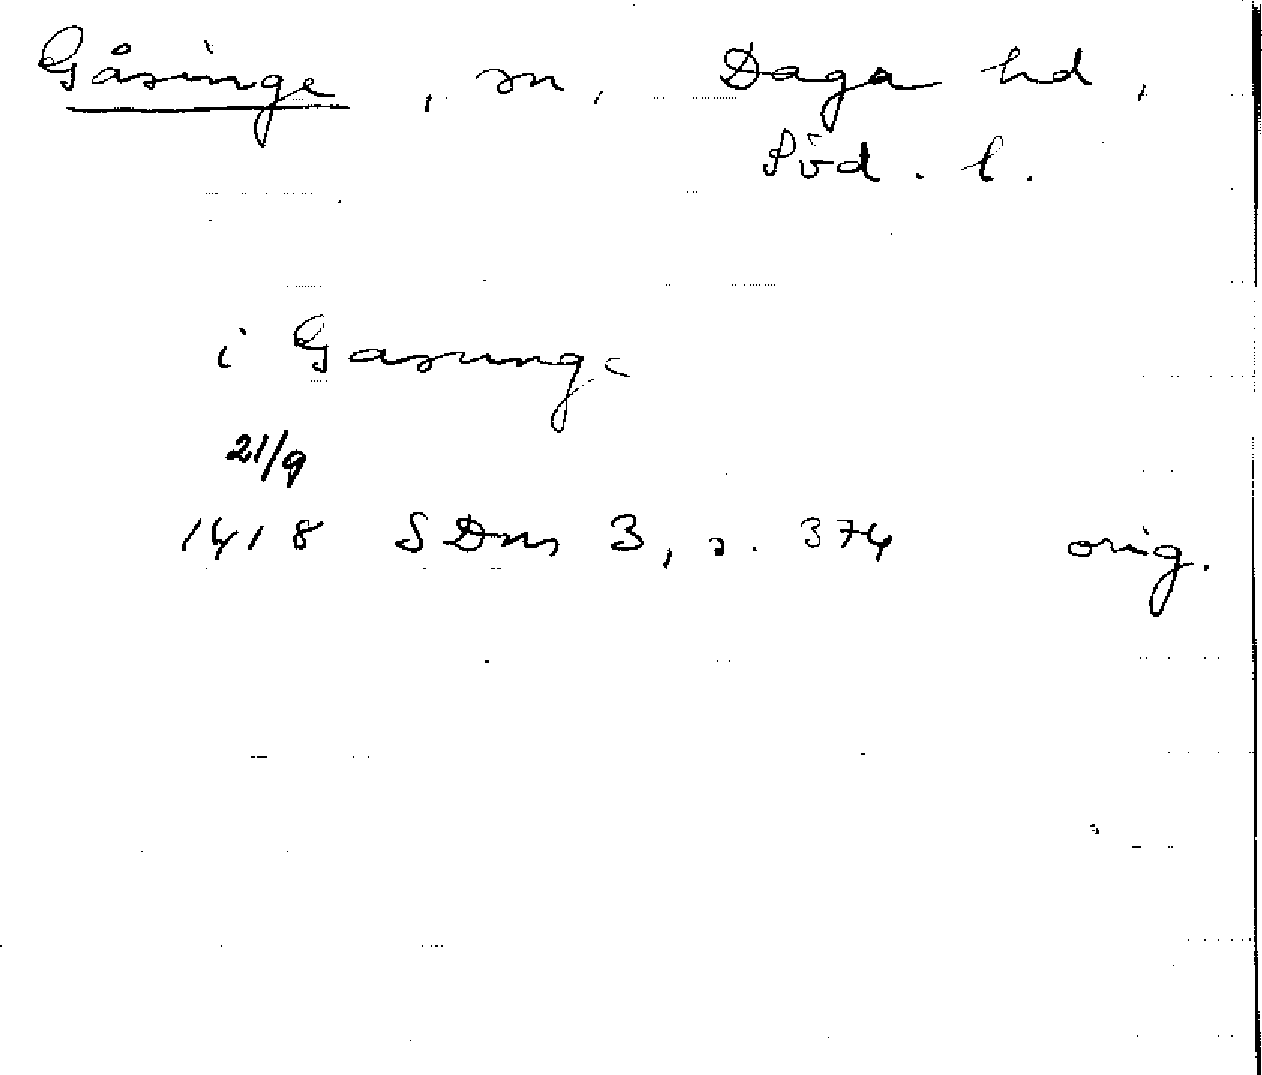 Gåsinge, sn, Daga hd,
Söd. l.
i Gasunge
21/9
1418 SDns 3, s. 374 orig.